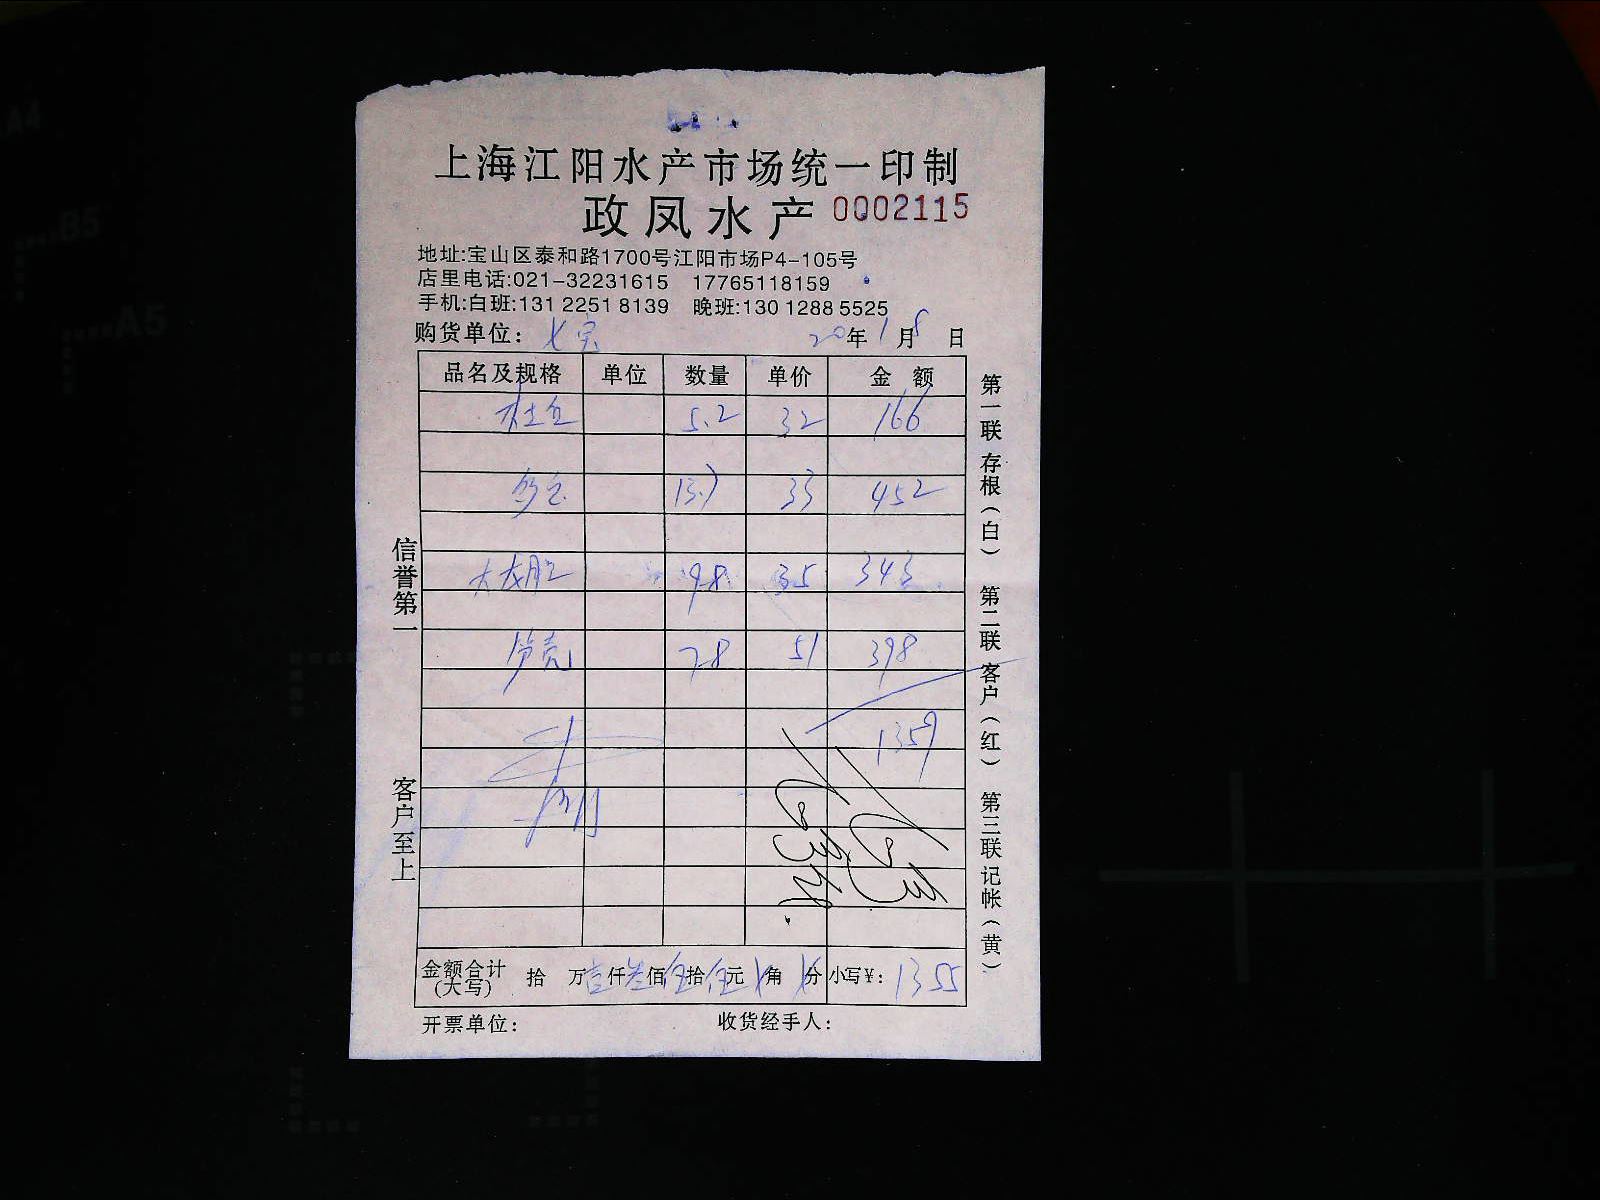 上海江阳水产市场统一印制
政凤水产 0002115
地址:宝山区泰和路1700号江阳市场P4-105号
店里电话:021-32231615 17765118159
手机:白班:131 2251 8139 晚班:130 1288 5525
购货单位: 七宝 20年1月8日
品名及规格 单位 数量 单价 金额
5.2 32 166
13.7 33 452
大龙胆 9.8 35 343
笋壳 7.8 51 398
1359
金额合计(大写) 拾 万壹仟叁佰伍拾伍元 角 分 小写¥: 1355
开票单位: 收货经手人:
信誉第一
客户至上
第一联 存根(白) 第二联 客户(红) 第三联 记帐(黄)
A4
B5
A5